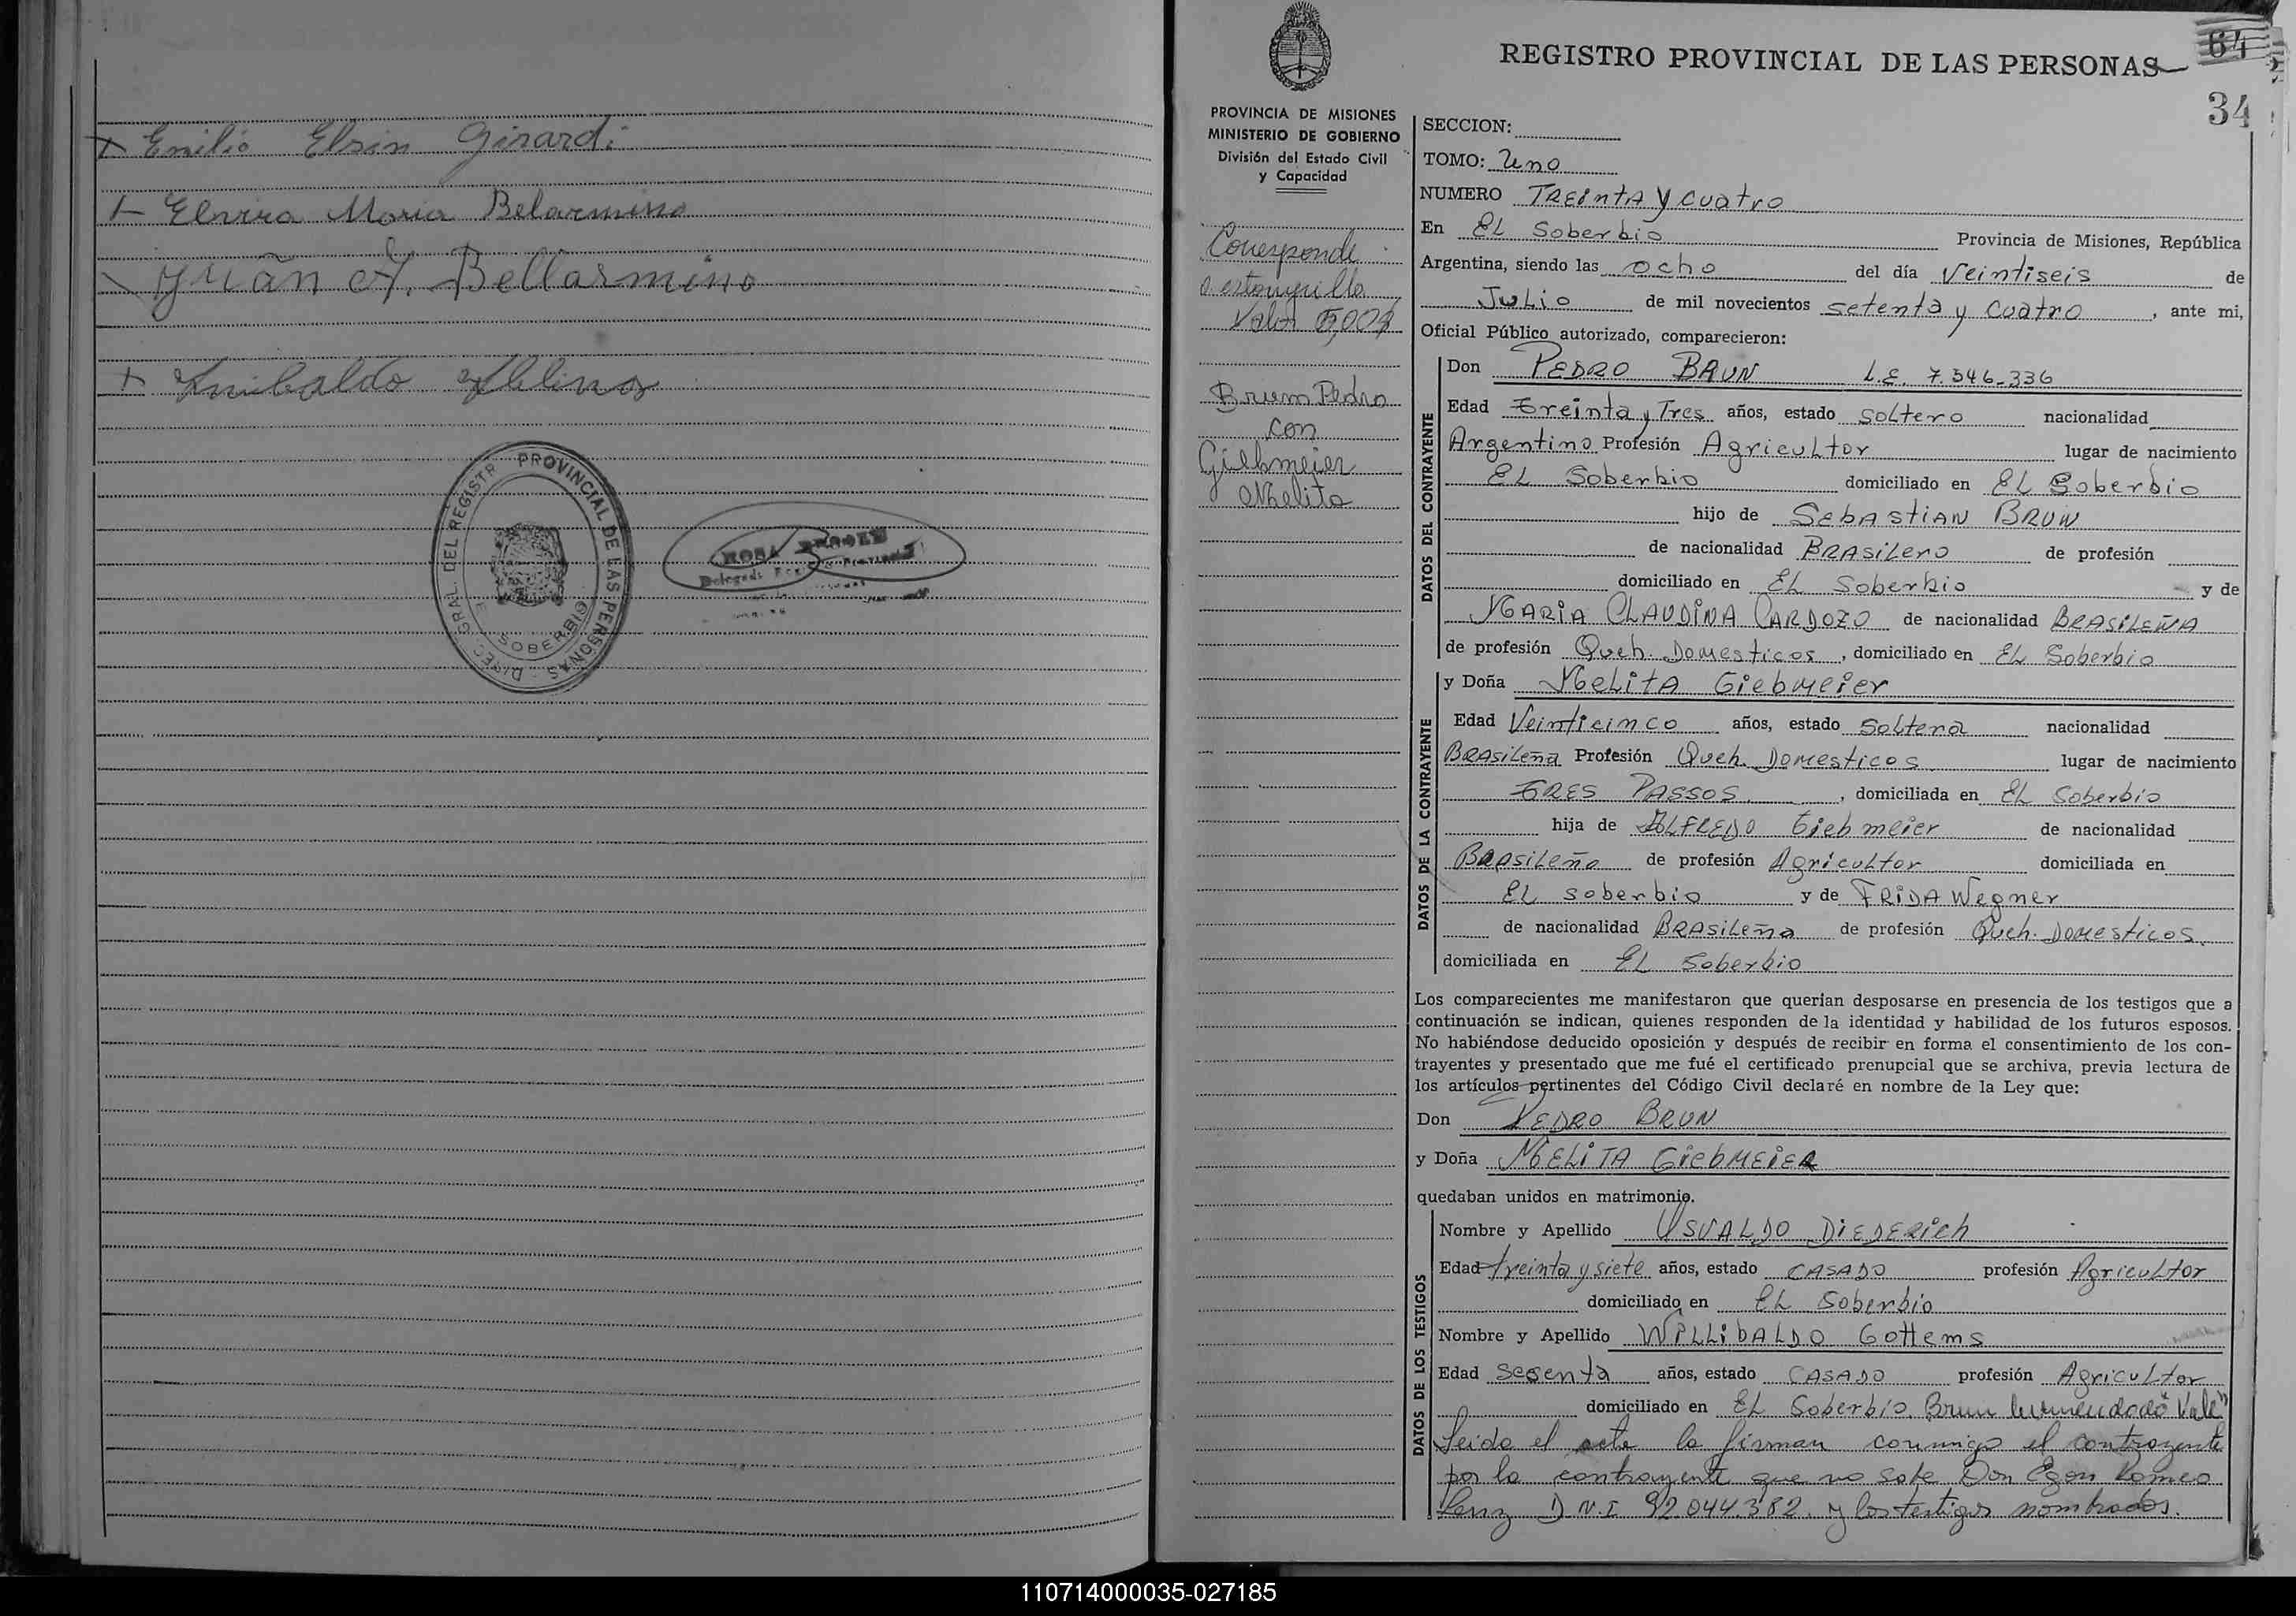 + Emilio Elsin Girardi
+ Elvira Maria Belarmino
Juan A. Bellarmino
+
DIREC. GRAL. DEL REGISTR PROVINCIAL DE LAS PERSONAS
SOBERBIO
ROSA
REGISTRO PROVINCIAL DE LAS PERSONAS
64
34
PROVINCIA DE MISIONES
MINISTERIO DE GOBIERNO
División del Estado Civil
y Capacidad
Corresponde
a estampilla
Valor 5,00$
Brum Pedro
con
Giebmeier
Melita
SECCION:
TOMO: Uno
NUMERO TREINTA y CUATRO
En EL Soberbio Provincia de Misiones, República
Argentina, siendo las ocho del día Veintiseis de
Julio de mil novecientos setenta y cuatro, ante mi,
Oficial Público autorizado, comparecieron:
DATOS DEL CONTRAYENTE
Don PEDRO BRUN L.E. 7.546.336
Edad treinta y Tres años, estado soltero nacionalidad
Argentino Profesión Agricultor lugar de nacimiento
EL Soberbio domiciliado en EL Soberbio
hijo de SebAstiAN BRUN
de nacionalidad BRASiLero de profesión
domiciliado en EL Soberbio y de
MARiA CLAUDiNA CARDOZO de nacionalidad BRASiLEÑA
de profesión Queh. Domesticos, domiciliado en EL Soberbio
DATOS DE LA CONTRAYENTE
y Doña MeLitA Giebmeier
Edad Veinticinco años, estado Soltera nacionalidad
BRASiLeña Profesión Queh. Domesticos lugar de nacimiento
TRES PASSOS, domiciliada en EL Soberbio
hija de ALFREDO Giebmeier de nacionalidad
BRasiLeño de profesión Agricultor domiciliada en
EL soberbio y de FRiDA Wegner
de nacionalidad BRASiLeña de profesión Queh. Domesticos
domiciliada en EL Soberbio
Los comparecientes me manifestaron que querían desposarse en presencia de los testigos que a
continuación se indican, quienes responden de la identidad y habilidad de los futuros esposos.
No habiéndose deducido oposición y después de recibir en forma el consentimiento de los con-
trayentes y presentado que me fué el certificado prenupcial que se archiva, previa lectura de
los artículos pertinentes del Código Civil declaré en nombre de la Ley que:
Don PEDRO BRUN
y Doña MELiTA GiebMEiER
quedaban unidos en matrimonio.
DATOS DE LOS TESTIGOS
Nombre y Apellido USVALDO DiEDERich
Edad treinta y siete años, estado CASADO profesión Agricultor
domiciliado en EL Soberbio
Nombre y Apellido WiLLibALDO Gottems
Edad sesenta años, estado CASADO profesión Agricultor
domiciliado en EL Soberbio. Brun enmendado "Vale"
Leida el acta la firman conmigo el contrayente
por la contrayente que no sabe Don Egon Romeo
Lenz D.N.I 92.044.382. y los testigos nombrados.
110714000035-027185